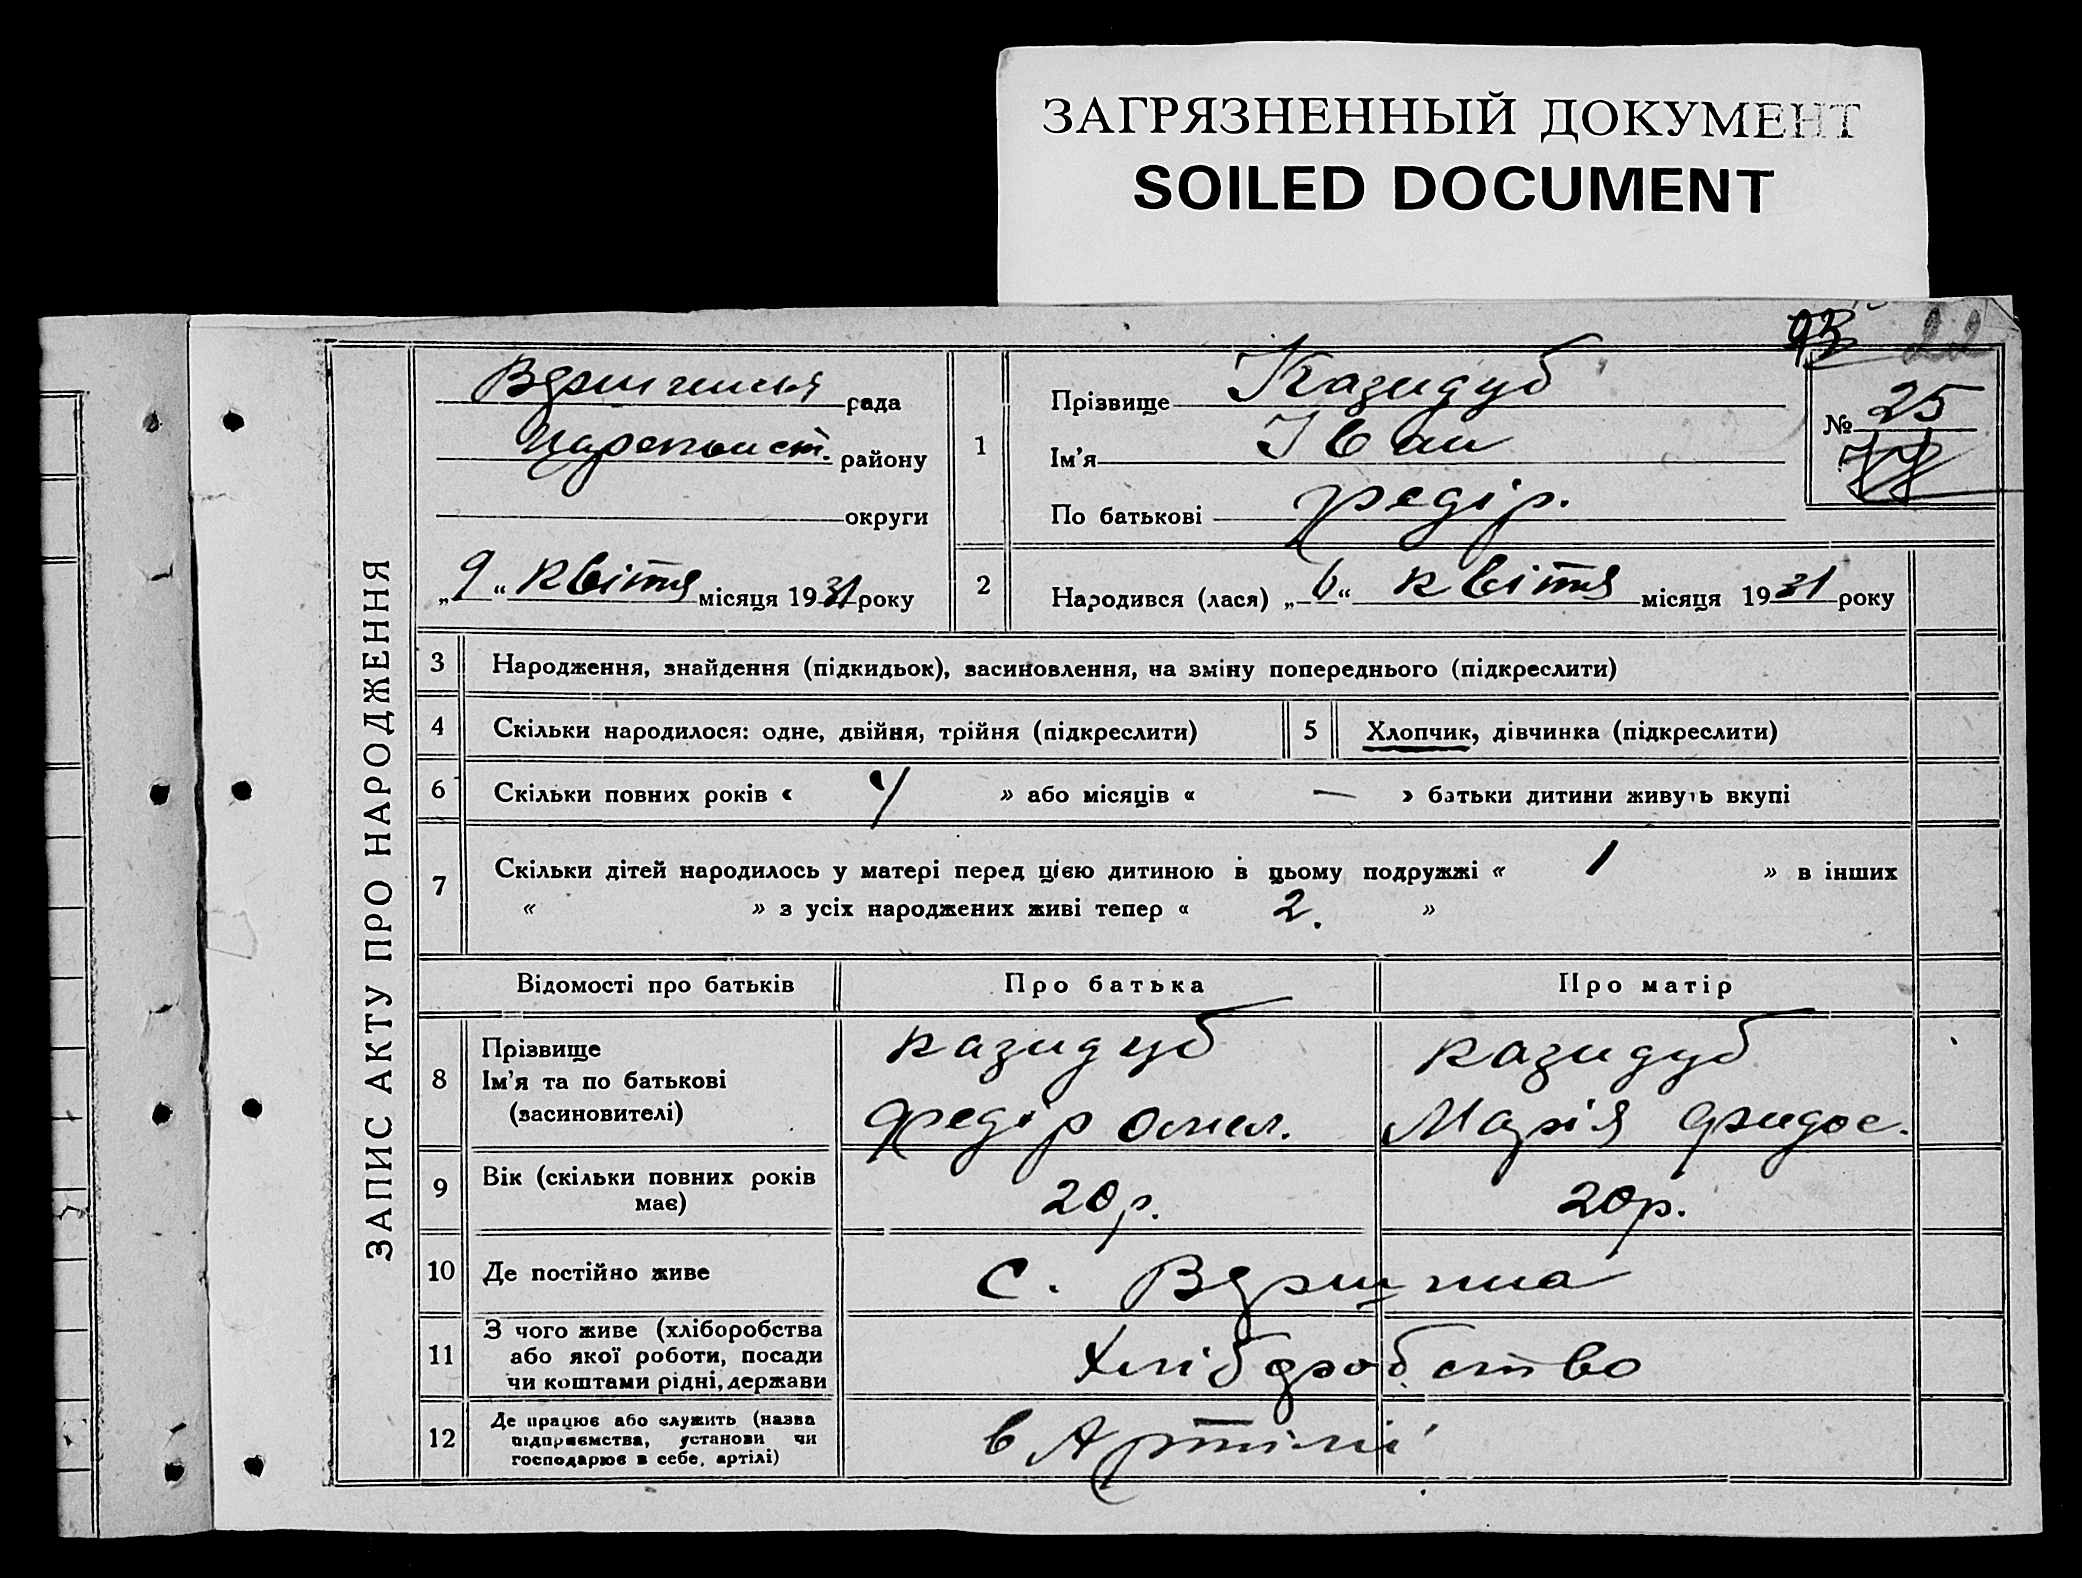 ЗАГРЯЗНЕННЫЙ ДОКУМЕНТ
SOILED DOCUMENT
ЗАПИС АКТУ ПРО НАРОДЖЕННЯ
рада
району
округи
„9“ квітня місяця 1931 року
1
Прізвище Казидуб
Ім’я Іван
По батькові Федір.
№ 25
2
Народився (лася) „6“ квітня місяця 1931 року
3 Народження, знайдення (підкидьок), засиновлення, на зміну попереднього (підкреслити)
4 Скільки народилося: одне, двійня, трійня (підкреслити)
5 Хлопчик, дівчинка (підкреслити)
6 Скільки повних років « » або місяців « — » батьки дитини живуть вкупі
7 Скільки дітей народилось у матері перед цією дитиною в цьому подружжі « 1 » в інших
« » з усіх народжених живі тепер « 2. »
Відомості про батьків
Про батька
Про матір
8
Прізвище
Ім’я та по батькові
(засиновителі)
Казидуб
Федір Омел.
Казидуб
Марія
9
Вік (скільки повних років
має)
20р.
20р.
10 Де постійно живе
с.
11
З чого живе (хліборобства
або якої роботи, посади
чи коштами рідні, держави
Хліборобство
12
Де працює або служить (назва
підприємства, установи чи
господарює в себе, артілі)
в Артілі